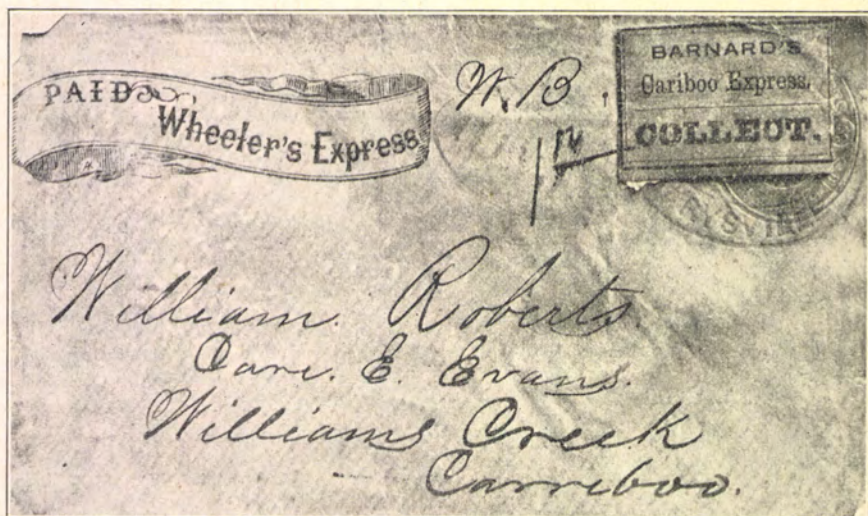 PAID
Wheeler's Express
W. B.
BARNARD'S
Cariboo Express,
COLLECT.
RYSVILL
William Roberts
Care. E. Evans.
Williams Creek
Carriboo.